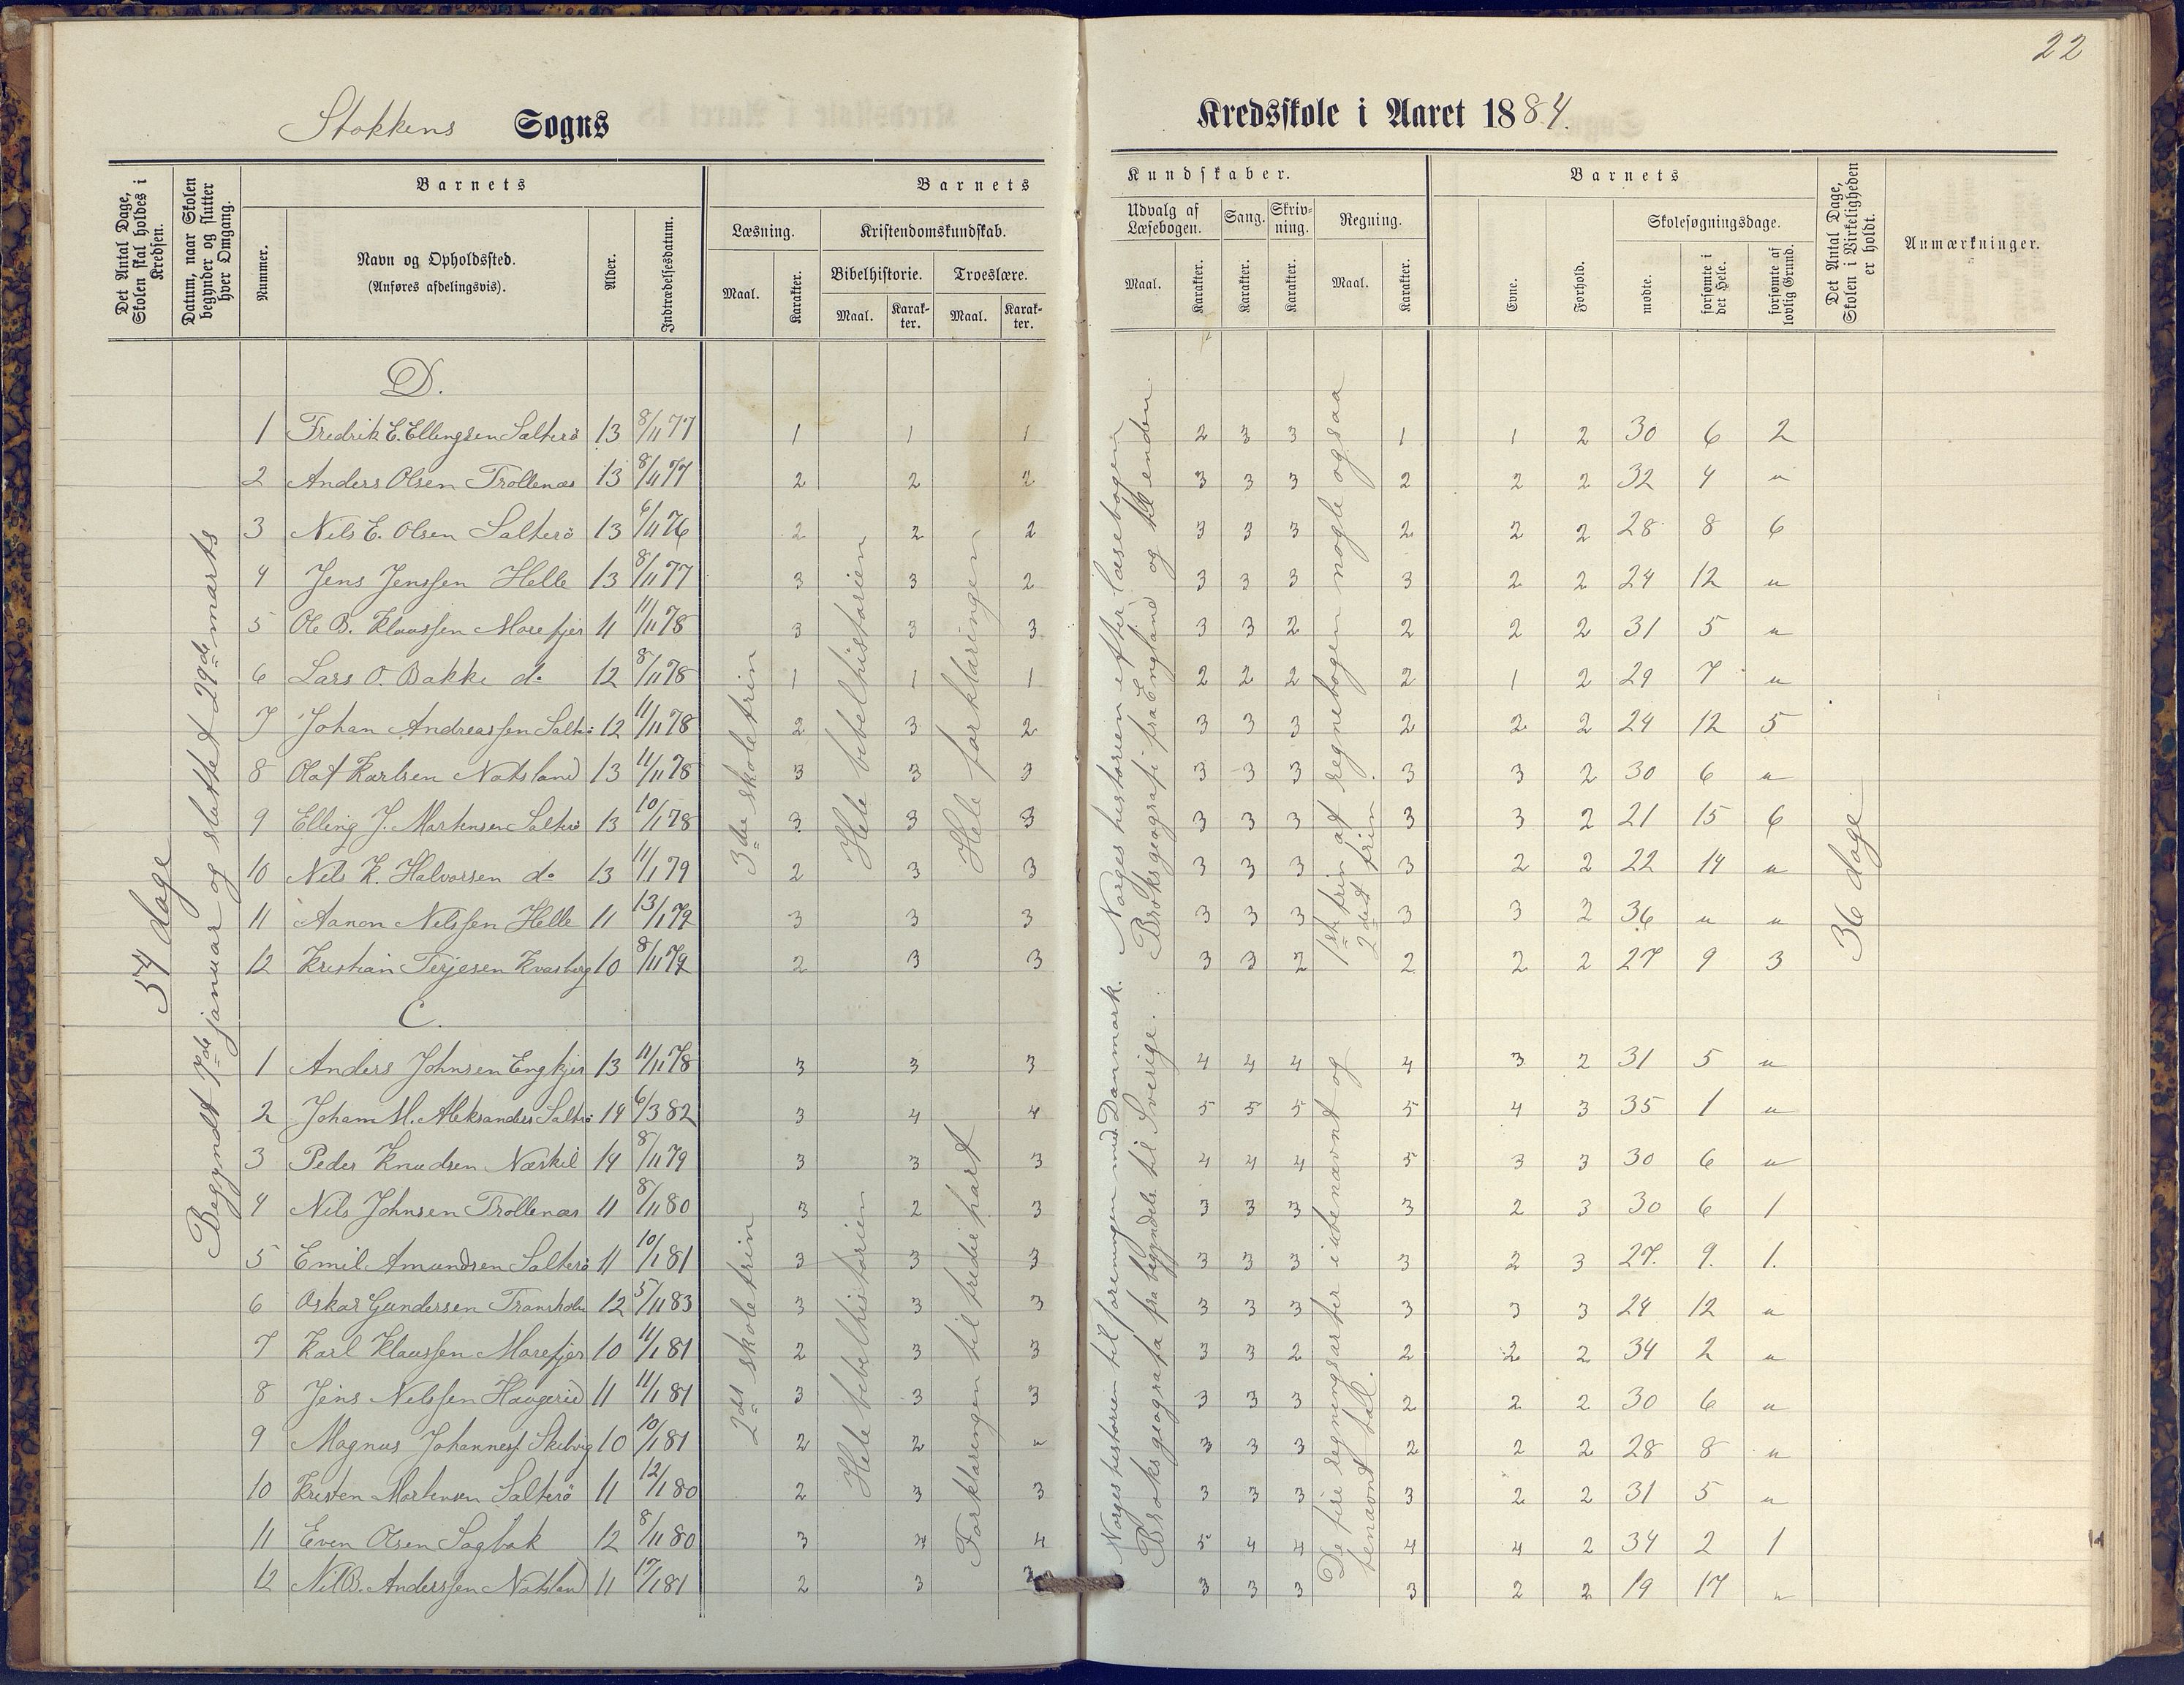 22
Stokkens Sogns Kredsskole i Aaret 1884.
Det Antal Dage, Skolen skal holdes i Kredsen.
Datum, naar Skolen begynder og slutter hver Omgang.
Barnets
Nummer.
Navn og Opholdssted.
(Anføres afdelingsvis).
Alder.
Indtrædelsesdatum.
Barnets Kundskaber.
Læsning.
Maal.
Karakter.
Kristendomskundskab.
Bibelhistorie.
Maal.
Karakter.
Troeslære.
Maal.
Karakter.
Udvalg af Læsebogen.
Maal.
Karakter.
Sang.
Karakter.
Skrivning.
Karakter.
Regning.
Maal.
Karakter.
Barnets
Evne.
Forhold.
Skolesøgningsdage.
mødte.
forsømte i det Hele.
forsømte af lovlig Grund.
Det Antal Dage, Skolen i Virkeligheden er holdt.
Anmærkninger.
54 dage
Begyndt 7de januar og sluttet 29de marts
D.
1 Fredrik E. Ellingsen Salterö 13 8/11 77 1 1 1 2 3 3 1 1 2 30 6 2
2 Anders Olsen Trollenæs 13 8/11 77 2 2 2 3 3 3 2 2 2 32 4 "
3 Nils E. Olsen Salterö 13 6/11 76 2 2 2 3 3 3 2 2 2 28 8 6
4 Jens Jenssen Helle 13 8/11 77 3 3 2 3 3 3 3 2 2 24 12 "
5 Ole B. Klaussen Morefjer 11 11/11 78 3 3 3 3 3 2 2 2 2 31 5 "
6 Lars O. Bakke do 12 8/11 78 1 1 1 2 2 2 2 1 2 29 7 "
7 Johan Andreassen Salt: 12 11/11 78 2 3 2 3 3 3 2 2 2 24 12 5
8 Olaf Karlsen Natsland 13 11/11 78 3 3 3 3 3 3 3 3 2 30 6 "
9 Elling J. Mortensen Salterö 13 10/1 78 3 3 3 3 3 3 3 3 2 21 15 6
10 Nils K. Halvorsen do 13 11/1 79 2 3 3 3 3 3 3 2 2 22 14 "
11 Aanon Nilssen Helle 11 13/1 79 3 3 3 3 3 3 3 3 2 36 " "
12 Kristian Terjesen Kvasberg 10 8/11 79 2 3 3 3 3 2 2 2 2 27 9 3
3die skoletrin
Hele bibelhistorien
Hele forklaringen
Norges historien efter læsebogen
Broks geografi fra England og til enden.
1ste trin af regnebogen nogle ogsaa
2det trin
36 dage
C.
1 Anders Johnsen Engkjer 13 11/11 78 3 3 3 4 4 4 4 3 2 31 5 "
2 Joham M. Aleksanders Salterö 14 6/3 82 3 4 4 5 5 5 5 4 3 35 1 "
3 Peder Knudsen Næskil 14 8/11 79 3 3 3 4 4 4 5 3 3 30 6 "
4 Nils Johnsen Trollenæs 11 8/11 80 3 2 3 3 3 3 3 2 3 30 6 1
5 Emil Amundsen Salterö 11 10/1 81 3 3 3 3 3 3 3 2 3 27. 9. 1.
6 Oskar Gundersen Transholm 12 5/11 83 3 3 3 3 3 3 3 3 3 24 12 "
7 Karl Klaussen Morefjer 10 11/1 81 2 3 3 3 3 2 2 2 2 34 2 "
8 Jens Nilssen Haugerid 11 11/1 81 3 3 3 3 3 3 2 2 2 30 6 "
9 Magnus Johanness. Skibvig 10 10/1 81 2 2 " 3 3 3 2 2 2 28 8 "
10 Kristen Mortensen Salterö 11 12/1 80 2 3 3 3 3 3 3 2 2 31 5 "
11 Even Olsen Sagbak 12 8/11 80 3 4 4 5 4 4 4 4 2 34 2 1
12 Nil B. Anderssen Natsland 11 17/1 81 2 3 3 3 3 3 2 2 19 17 "
2det skoletrin
Hele bibelhistorien
Forklaringen til tredie part
Norges historien til foreningen med Danmark.
Broks geografa fra begyndels. til Sverige.
De fire regningsarter i ubenævnt og
benævnt tall.